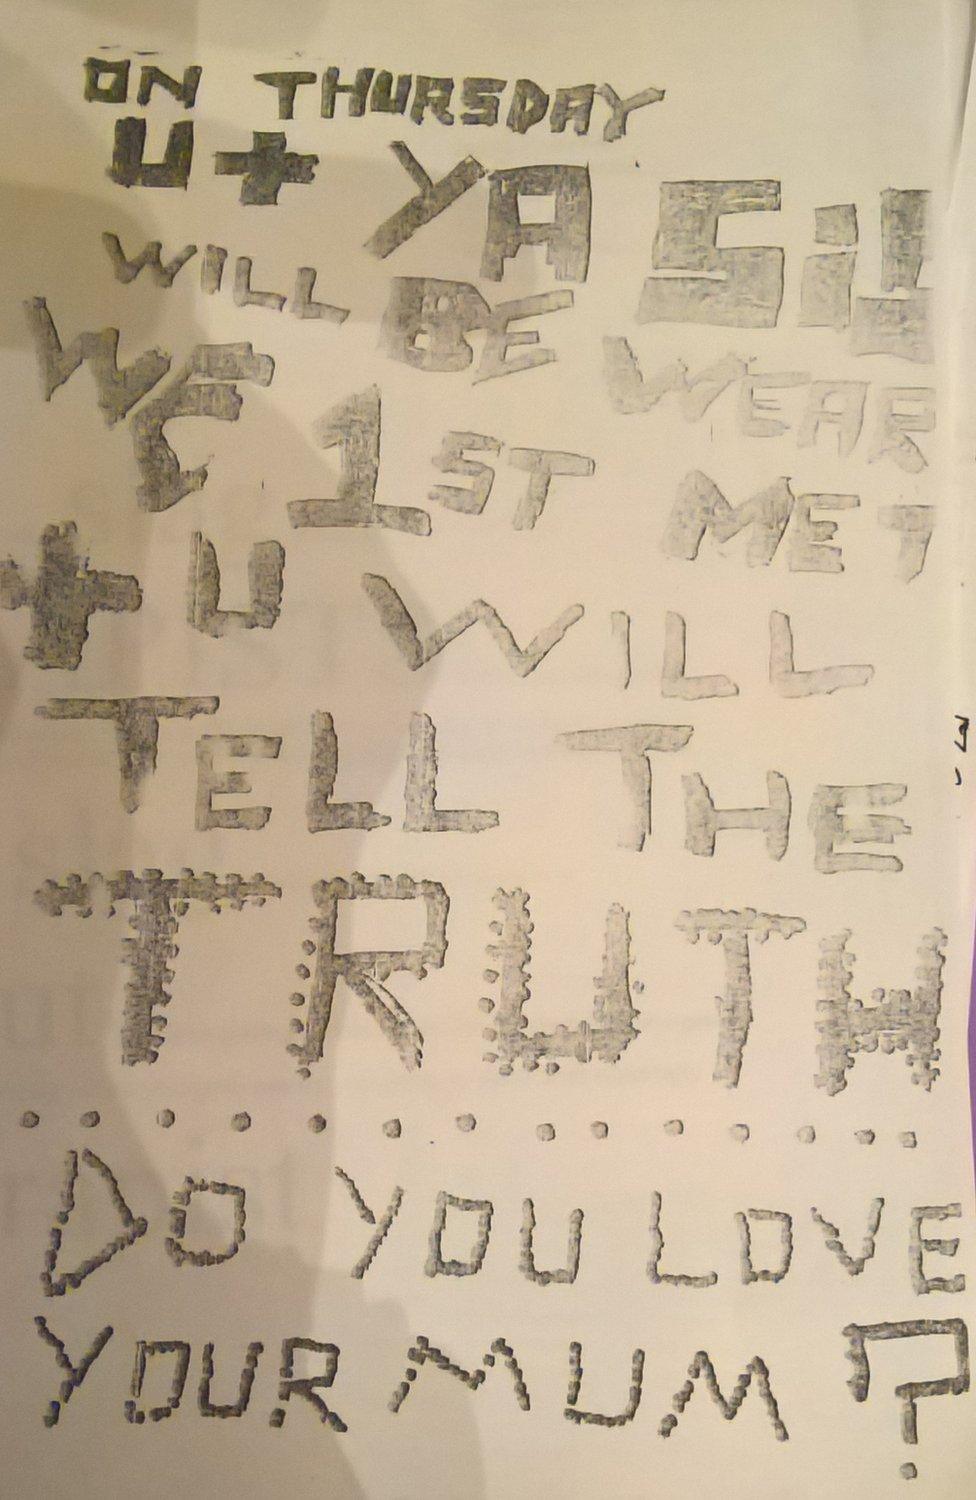 ON THURSDAY
U + YA SiS
WILL BE WEAR
WE 1ST MET
+ U WILL
TELL THE
TRUTH
..............
DO YOU LOVE
YOUR MUM?